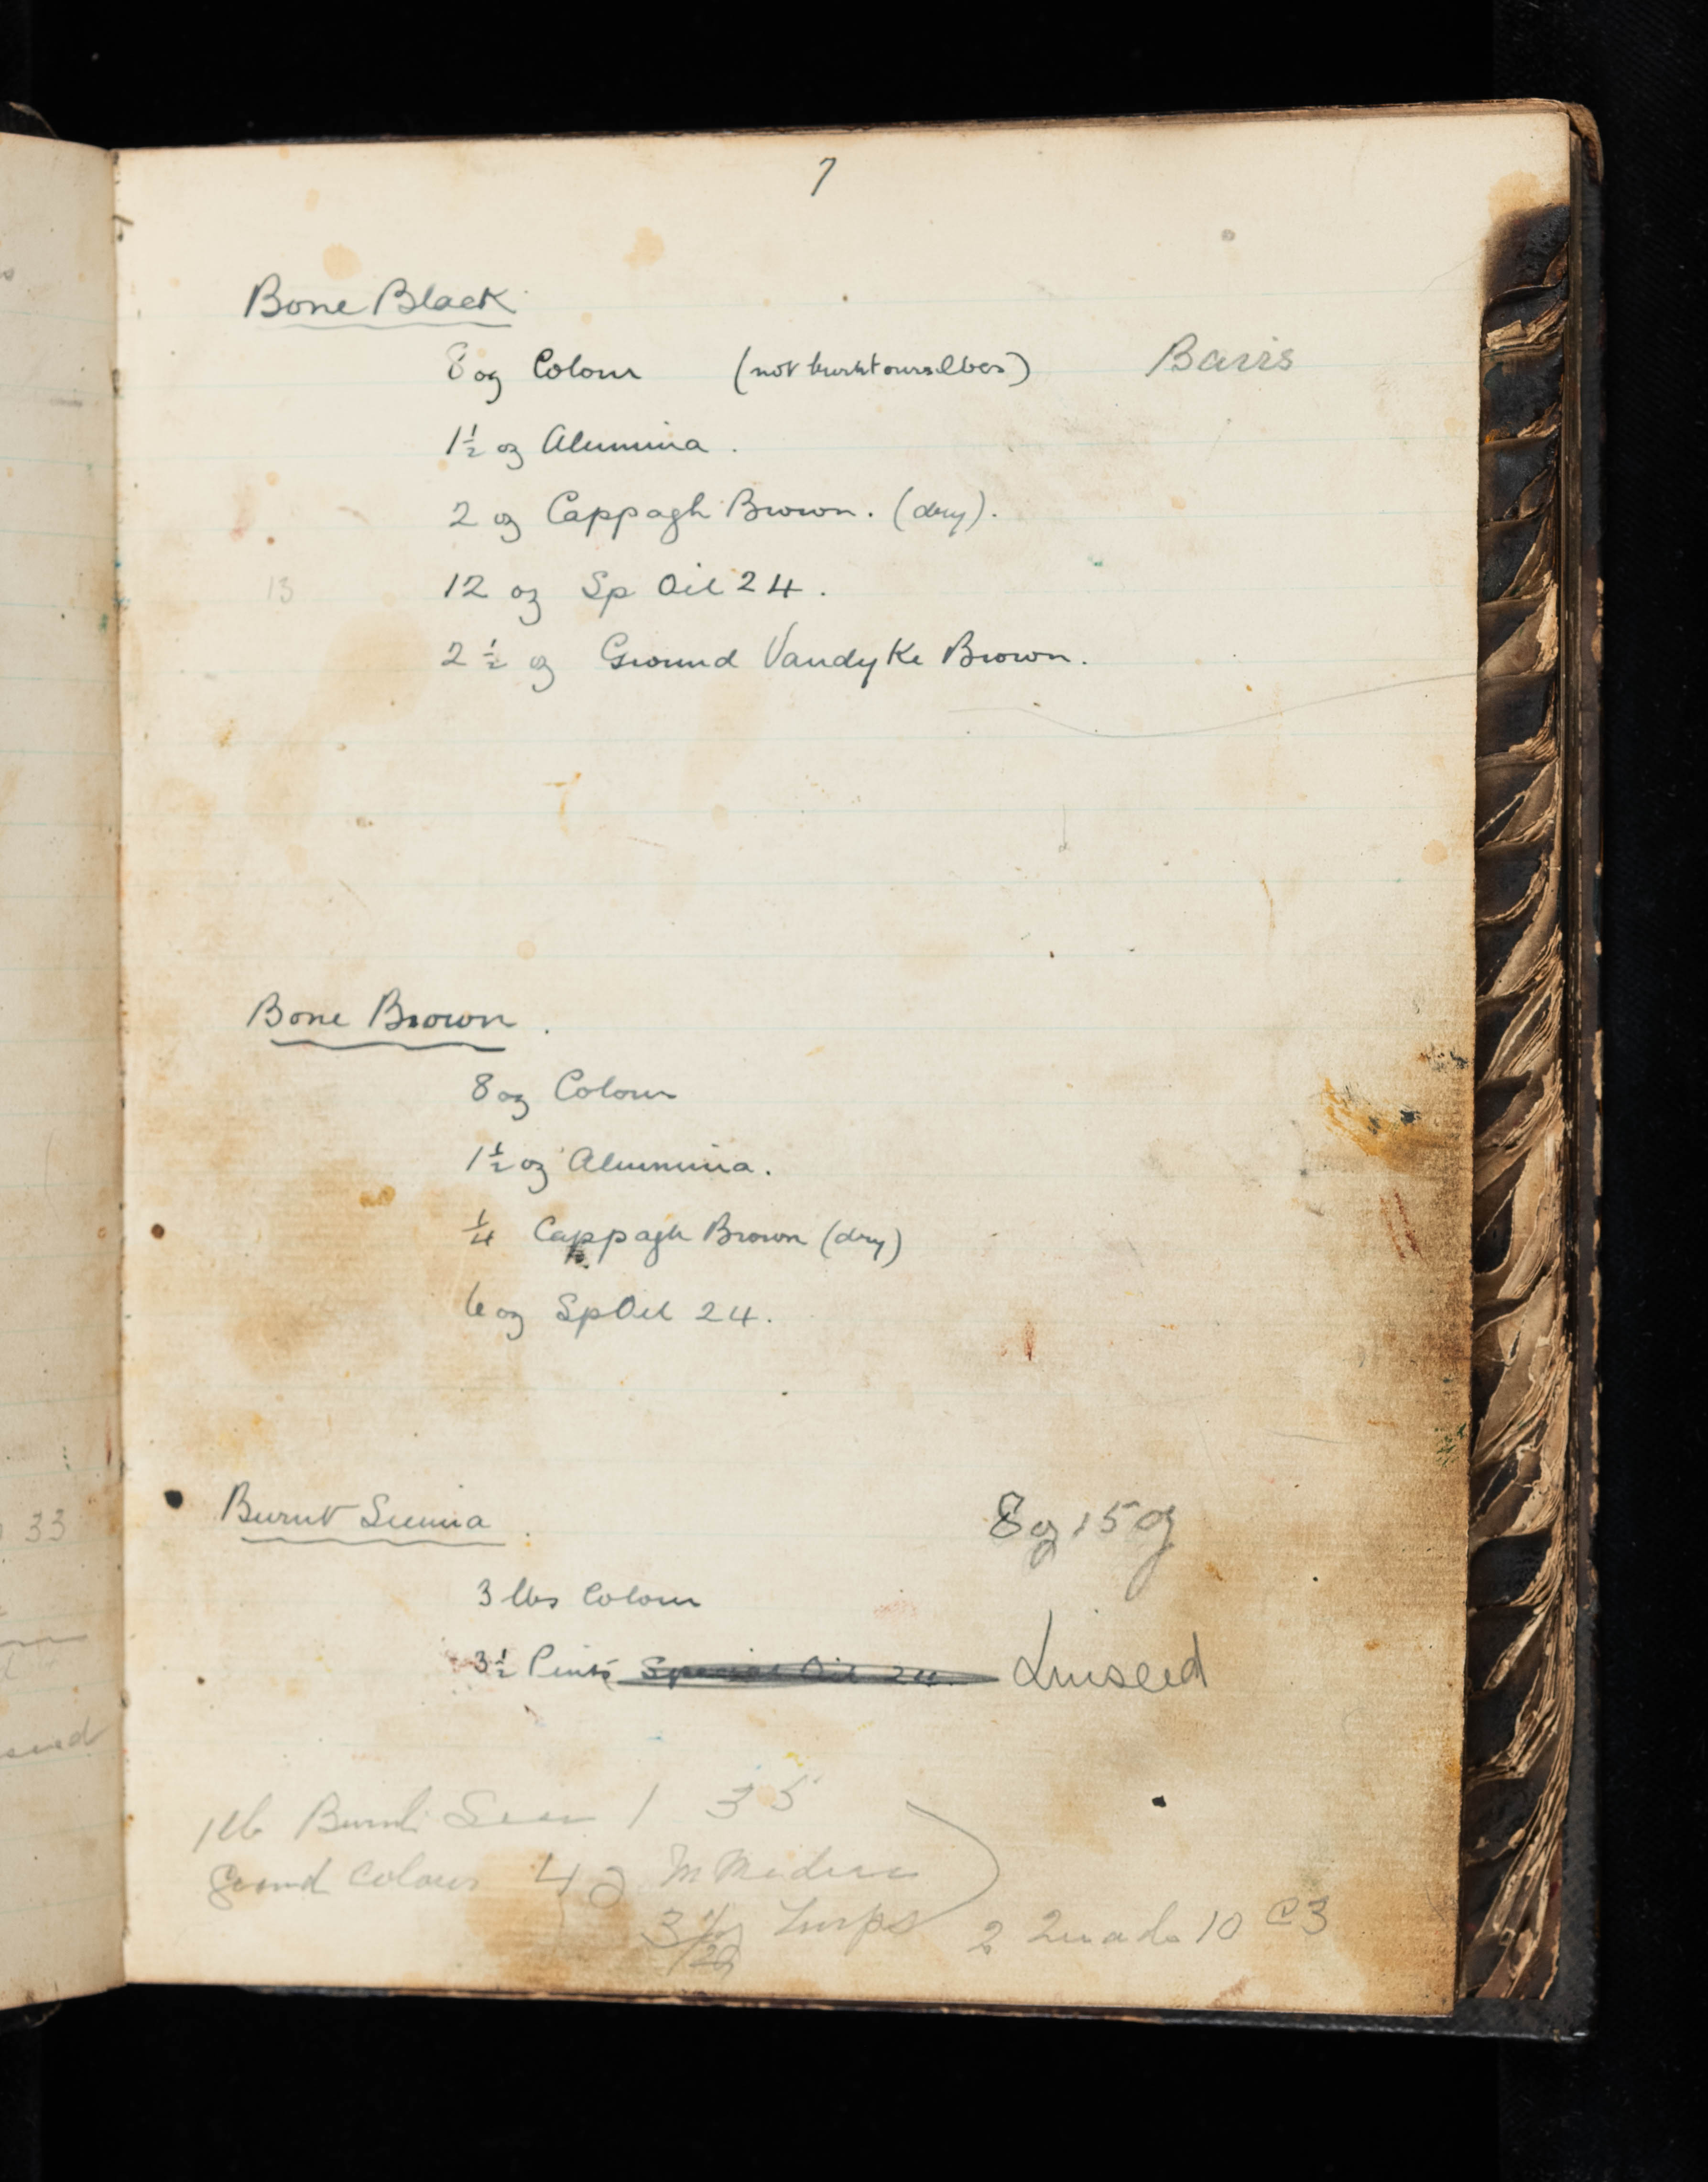 7
Bone Black
8 oz Colour (not burnt ourselves) Barris
1½ oz Alumina.
2 oz Cappagh Brown. (dry).
13 12 oz Sp Oil 24.
2½ oz Ground Vandyke Brown.
Bone Brown.
8 oz Colour
1½ oz Alumina.
¼ Cappagh Brown (dry)
6 oz Sp Oil 24.
Burnt Sienna. 8 oz 15 oz
3 lbs Colour
3½ Pints Special Oil 24. Linseed
1 lb Burnt 1 35
Ground Colours 4 oz
3 Turps 2 10 @ 3
33